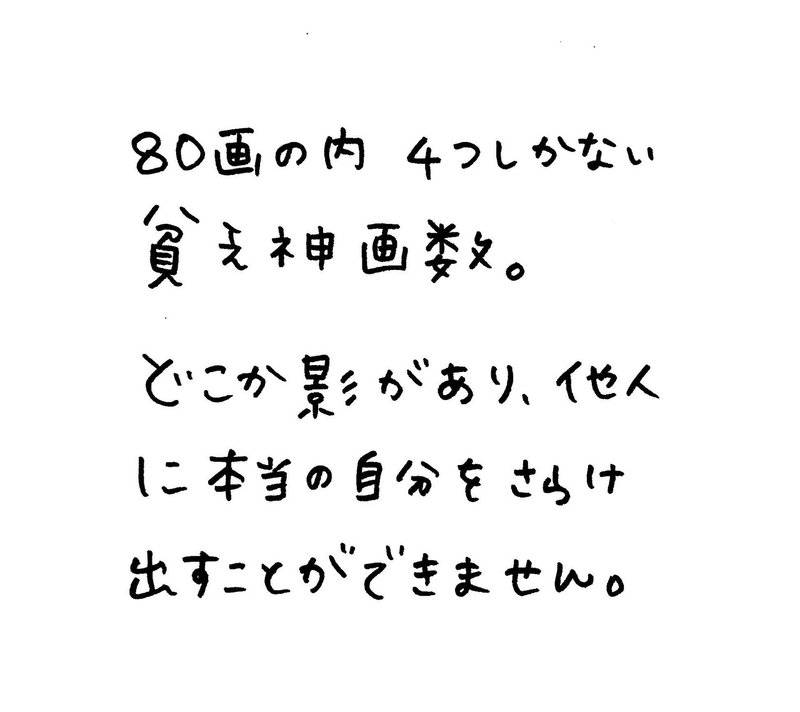 80画の内 4つしかない
貧え神画数。
どこか影があり、他人
に本当の自分をさらけ
出すことができません。